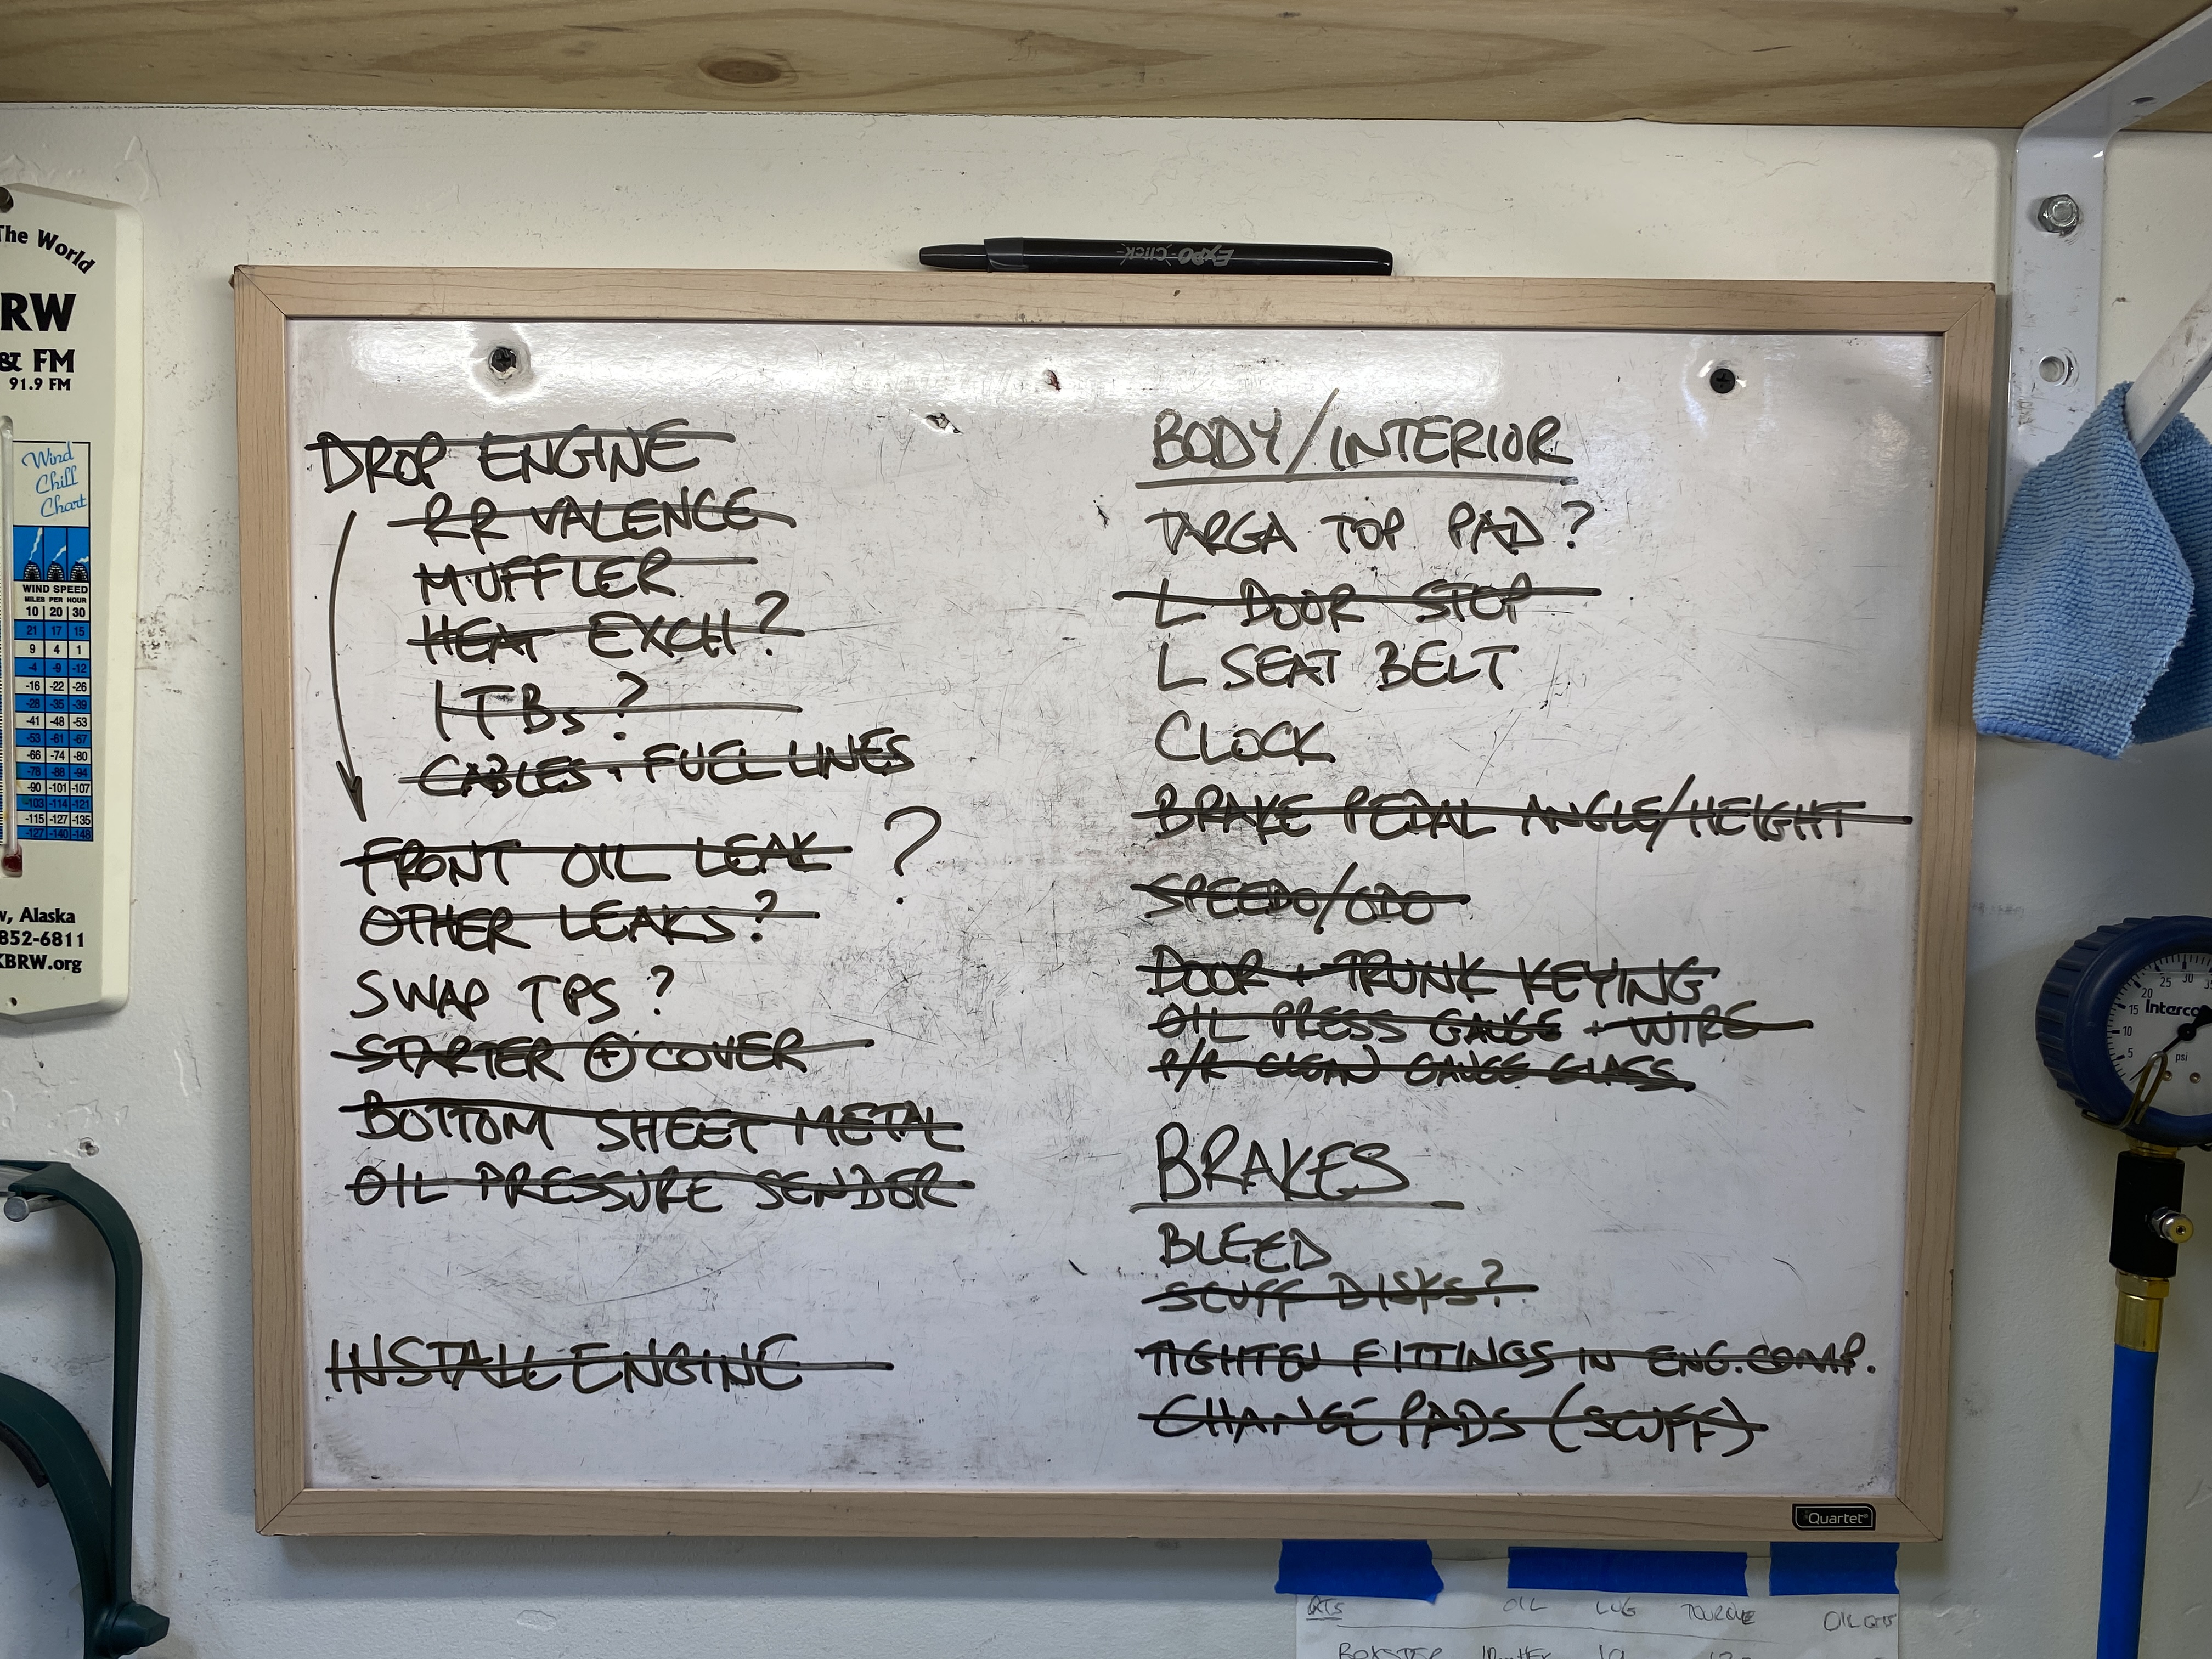 The World
RW
& FM
91.9 FM
Wind
Chill
Chart
WIND SPEED
MILES PER HOUR
10 20 30
21 17 15
9 4 1
-4 -9 -12
-16 -22 -26
-28 -35 -39
-41 -48 -53
-53 -61 -67
-66 -74 -80
-78 -88 -94
-90 -101 -107
-103 -114 -121
-115 -127 -135
-127 -140 -148
w, Alaska
852-6811
KBRW.org
EXPO Click
DROP ENGINE
RR VALENCE
MUFFLER
HEAT EXCH?
ITBs?
CABLES + FUEL LINES
FRONT OIL LEAK ?
OTHER LEAKS?
SWAP TPS?
STARTER ⊕ COVER
BOTTOM SHEET METAL
OIL PRESSURE SENDER
INSTALL ENGINE
BODY/INTERIOR
TARGA TOP PAD?
L DOOR STOP
L SEAT BELT
CLOCK
BRAKE PEDAL ANGLE/HEIGHT
SPEEDO/ODO
DOOR + TRUNK KEYING
OIL PRESS GAUGE + WIRE
R/R CLEAN GAUGE GLASS
BRAKES
BLEED
SCUFF DISKS?
TIGHTEN FITTINGS IN ENG. COMP.
CHANGE PADS (SCUFF)
Quartet
20 25 30 35
15 Interco
10
5 psi
OIL LUG TORQUE OIL QTS
BOXSTER 19